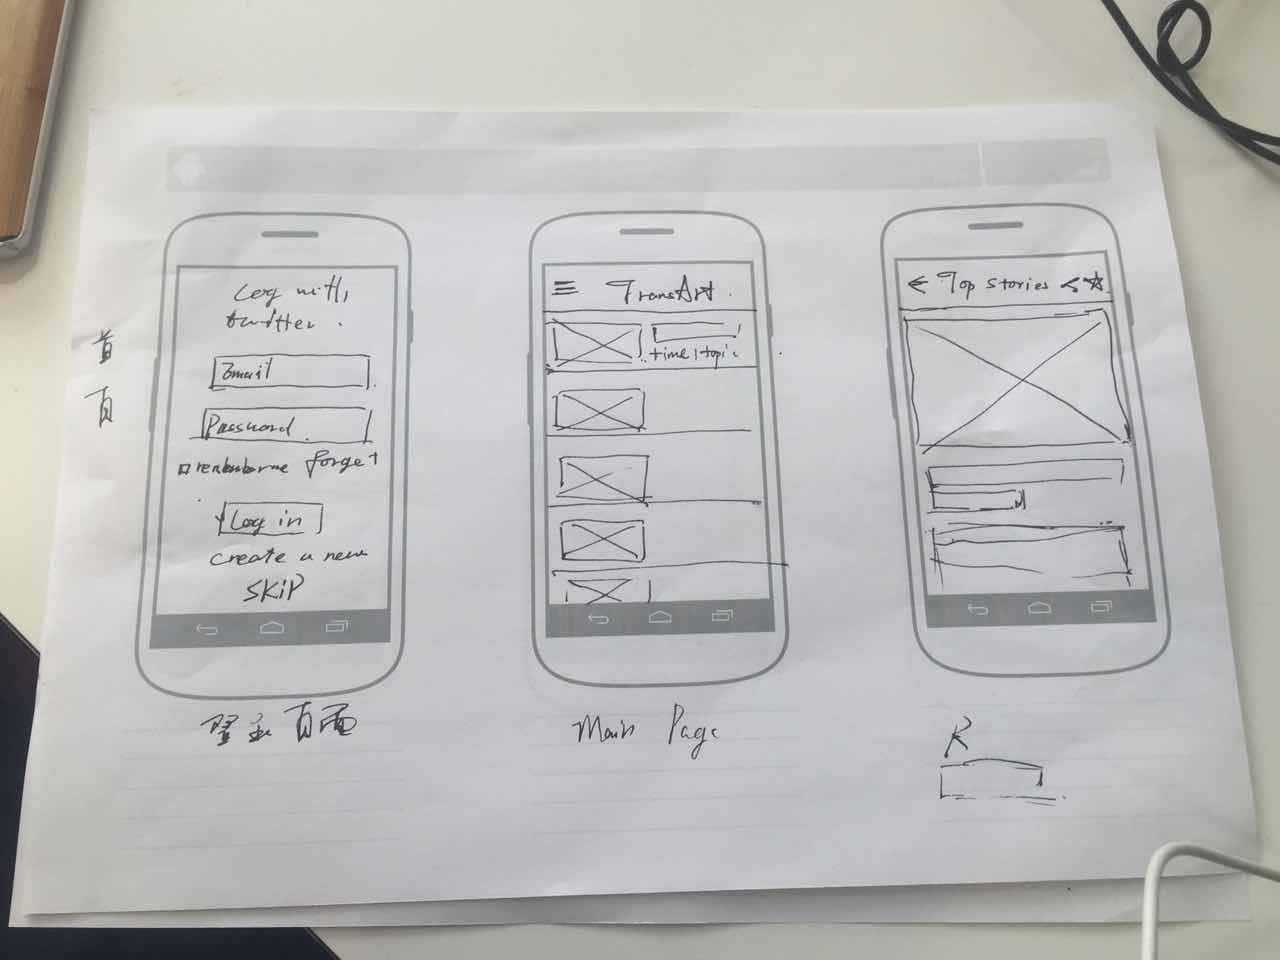 首
页
Log with
twitter.
Email
Password
forget
Log in
create a new
SKIP
页面
TransArt.
time | topic
Main Page
Top stories
R